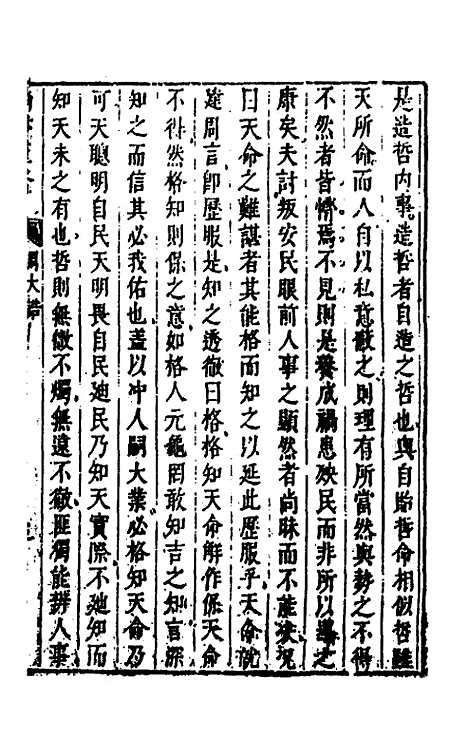 是造哲内事造哲者自造之哲也與自貽哲命相似哲雖
天所命而人自以私意蔽之則理有所當然與勢之不得
不然者皆懵焉不見則是養成禍患殃民而非所以導之
康矣夫討叛安民眼前人事之顯然者尚昧而不能決况
曰天命之難諶者其能格而知之以延此歷服乎天命就
難周言卽歷服是知之透徹曰格格知天命解作保天命
不得然格知則保之意如格人元龜罔敢知吉之知言深
知之而信其必我佑也蓋以冲人嗣大業必格知天命乃
可天聰明自民天明畏自民廸民乃知天實際不廸知而
知天未之有也哲則無微不燭無遠不徹匪獨能辨人事
周大誥